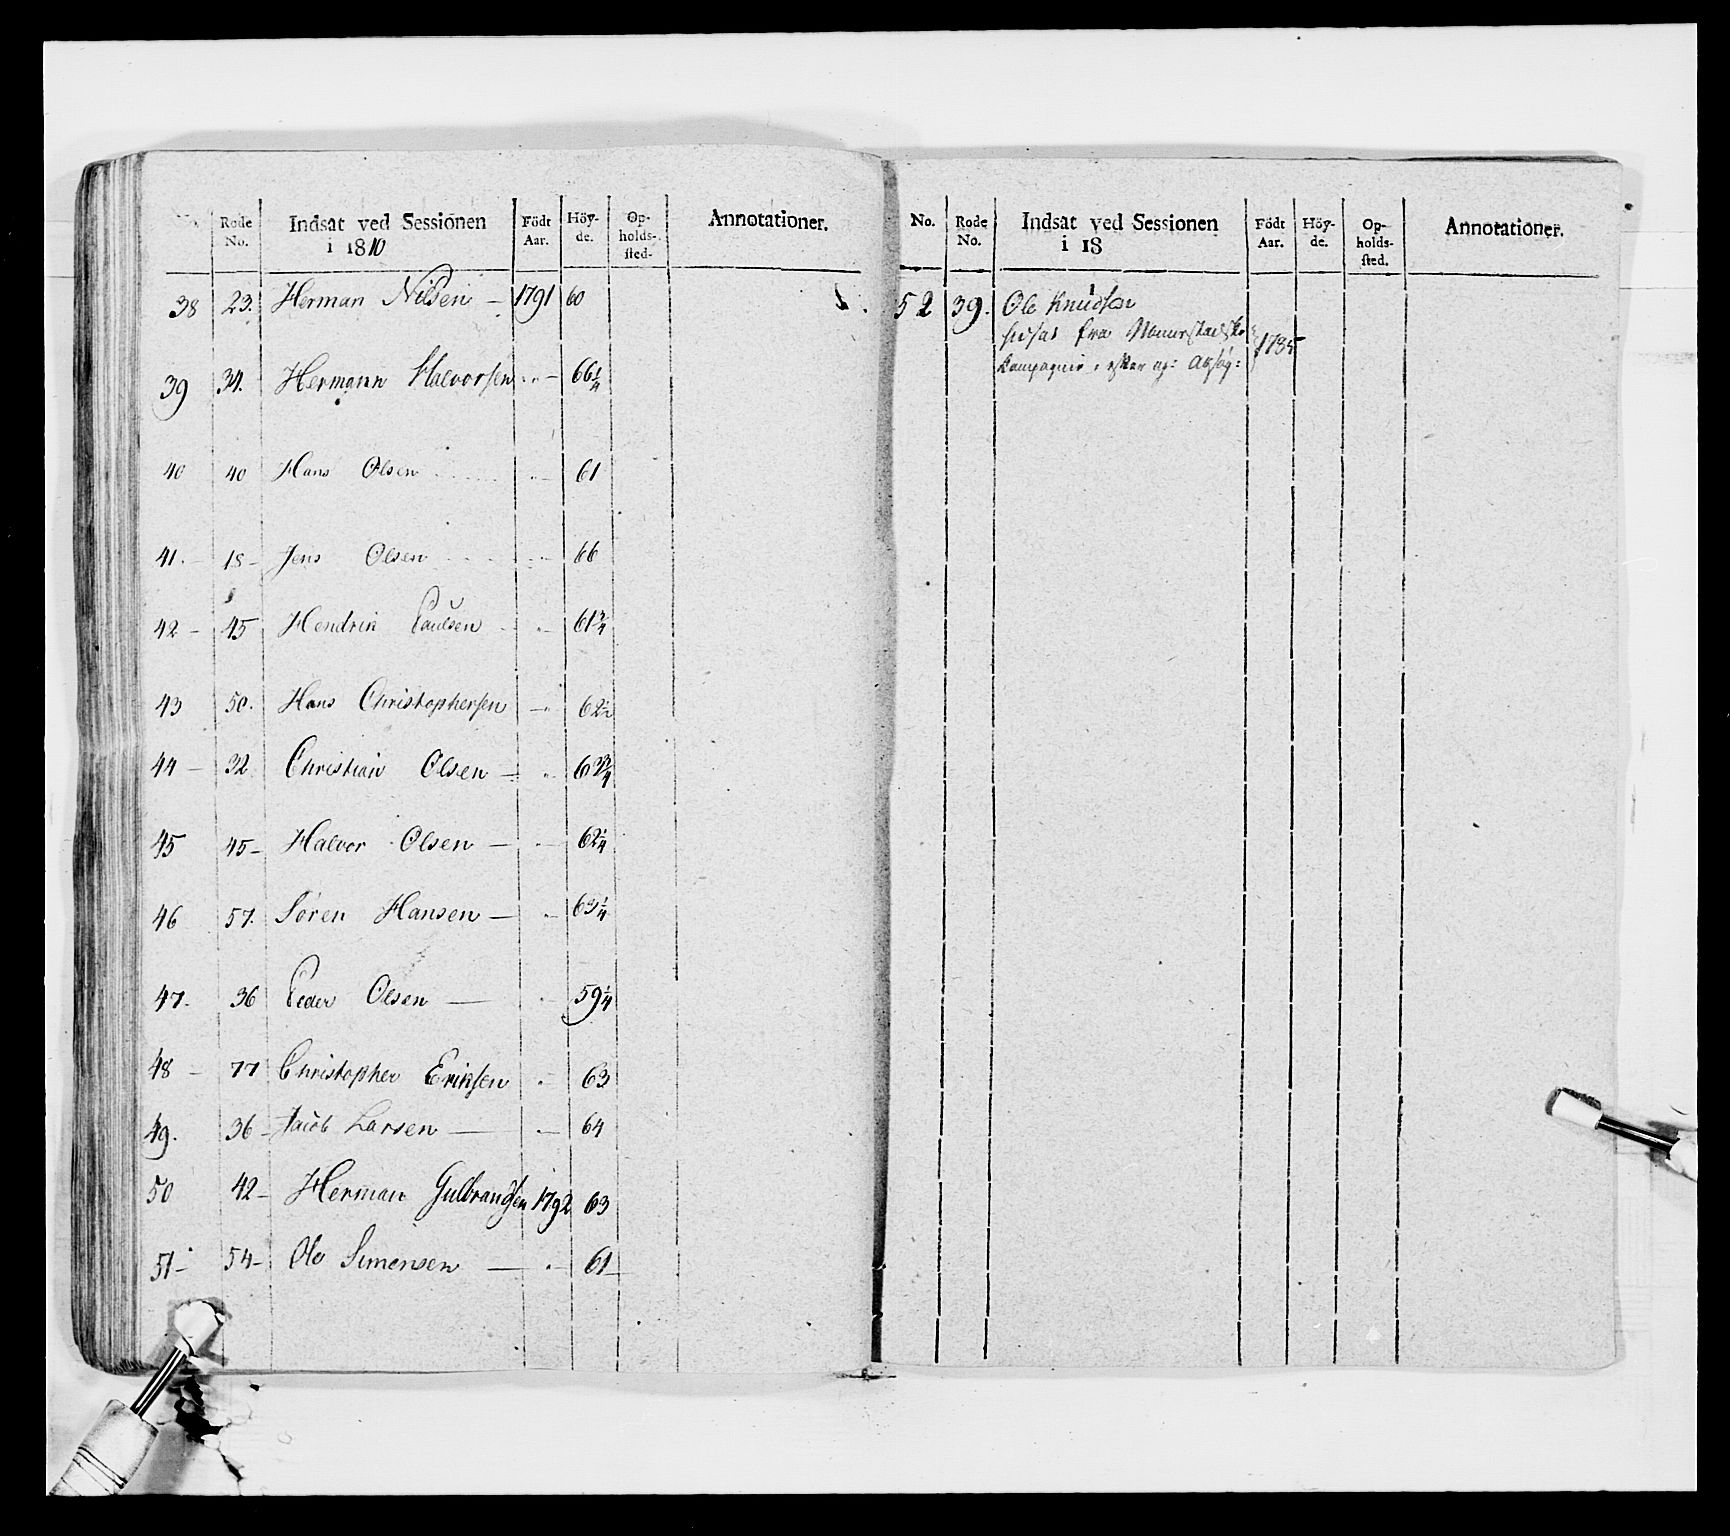 Rode No. Indsat ved Sessionen i 1810 Födt Aar. Höyde. Opholdssted. Annotationer.
38 23. Herman Nilsen — 1791 60
39 34. Hermann Halvorsen „ — 66 1/4
40 40 Hans Olsen „ — 61
41. — 18 — Jens Olsen „ — 66
42 — 45 Hendrik Paulsen — „ — 61 3/4
43 50. Hans Christophersen — „ 62 1/2
44 — 32 Christian Olsen — „ 63 3/4
45 45 — Halvor Olsen — „ — 62 1/4
46 57. Sören Hansen — „ — 63 1/4
47. 36 Peder Olsen — „ 59 1/4
48 — 77 Christopher Eriksen „ 63
49. 36 — Jacob Larsen — „ — 64
50 42 — Herman Gulbrandsen 1792 63
51 — 54 — Ole Simensen — „ — 61
No. Rode No. Indsat ved Sessionen i 18 Födt Aar. Höyde. Opholdssted. Annotationer.
52 39. Ole Knudsen
fra
Kompagnie 1785